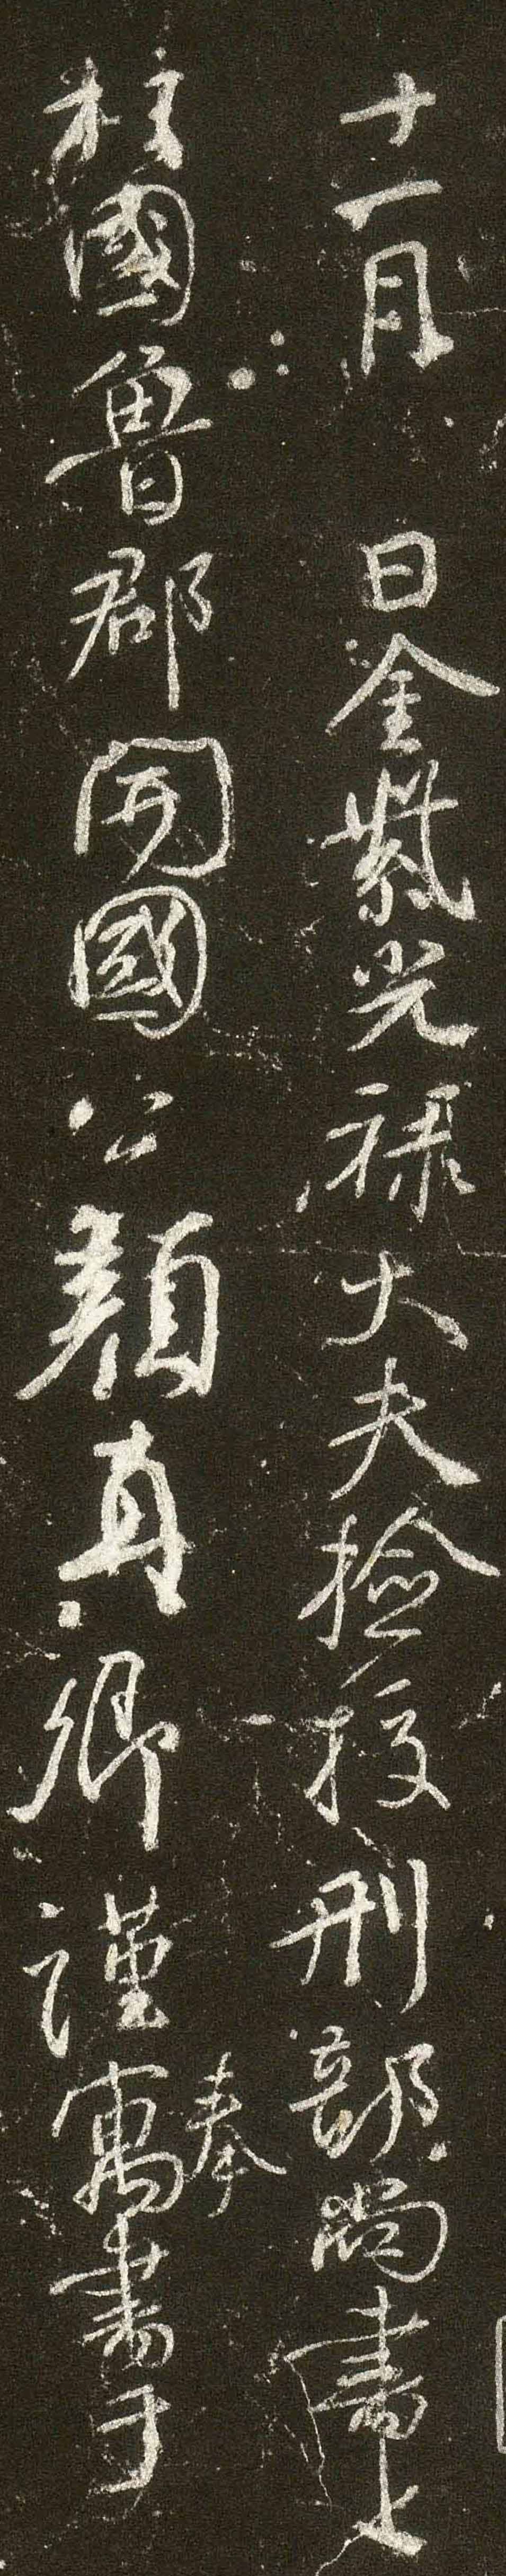 十一月 日金紫光祿大夫檢挍刑部尚書上
柱國魯郡開國公顏真卿謹奉寓書于